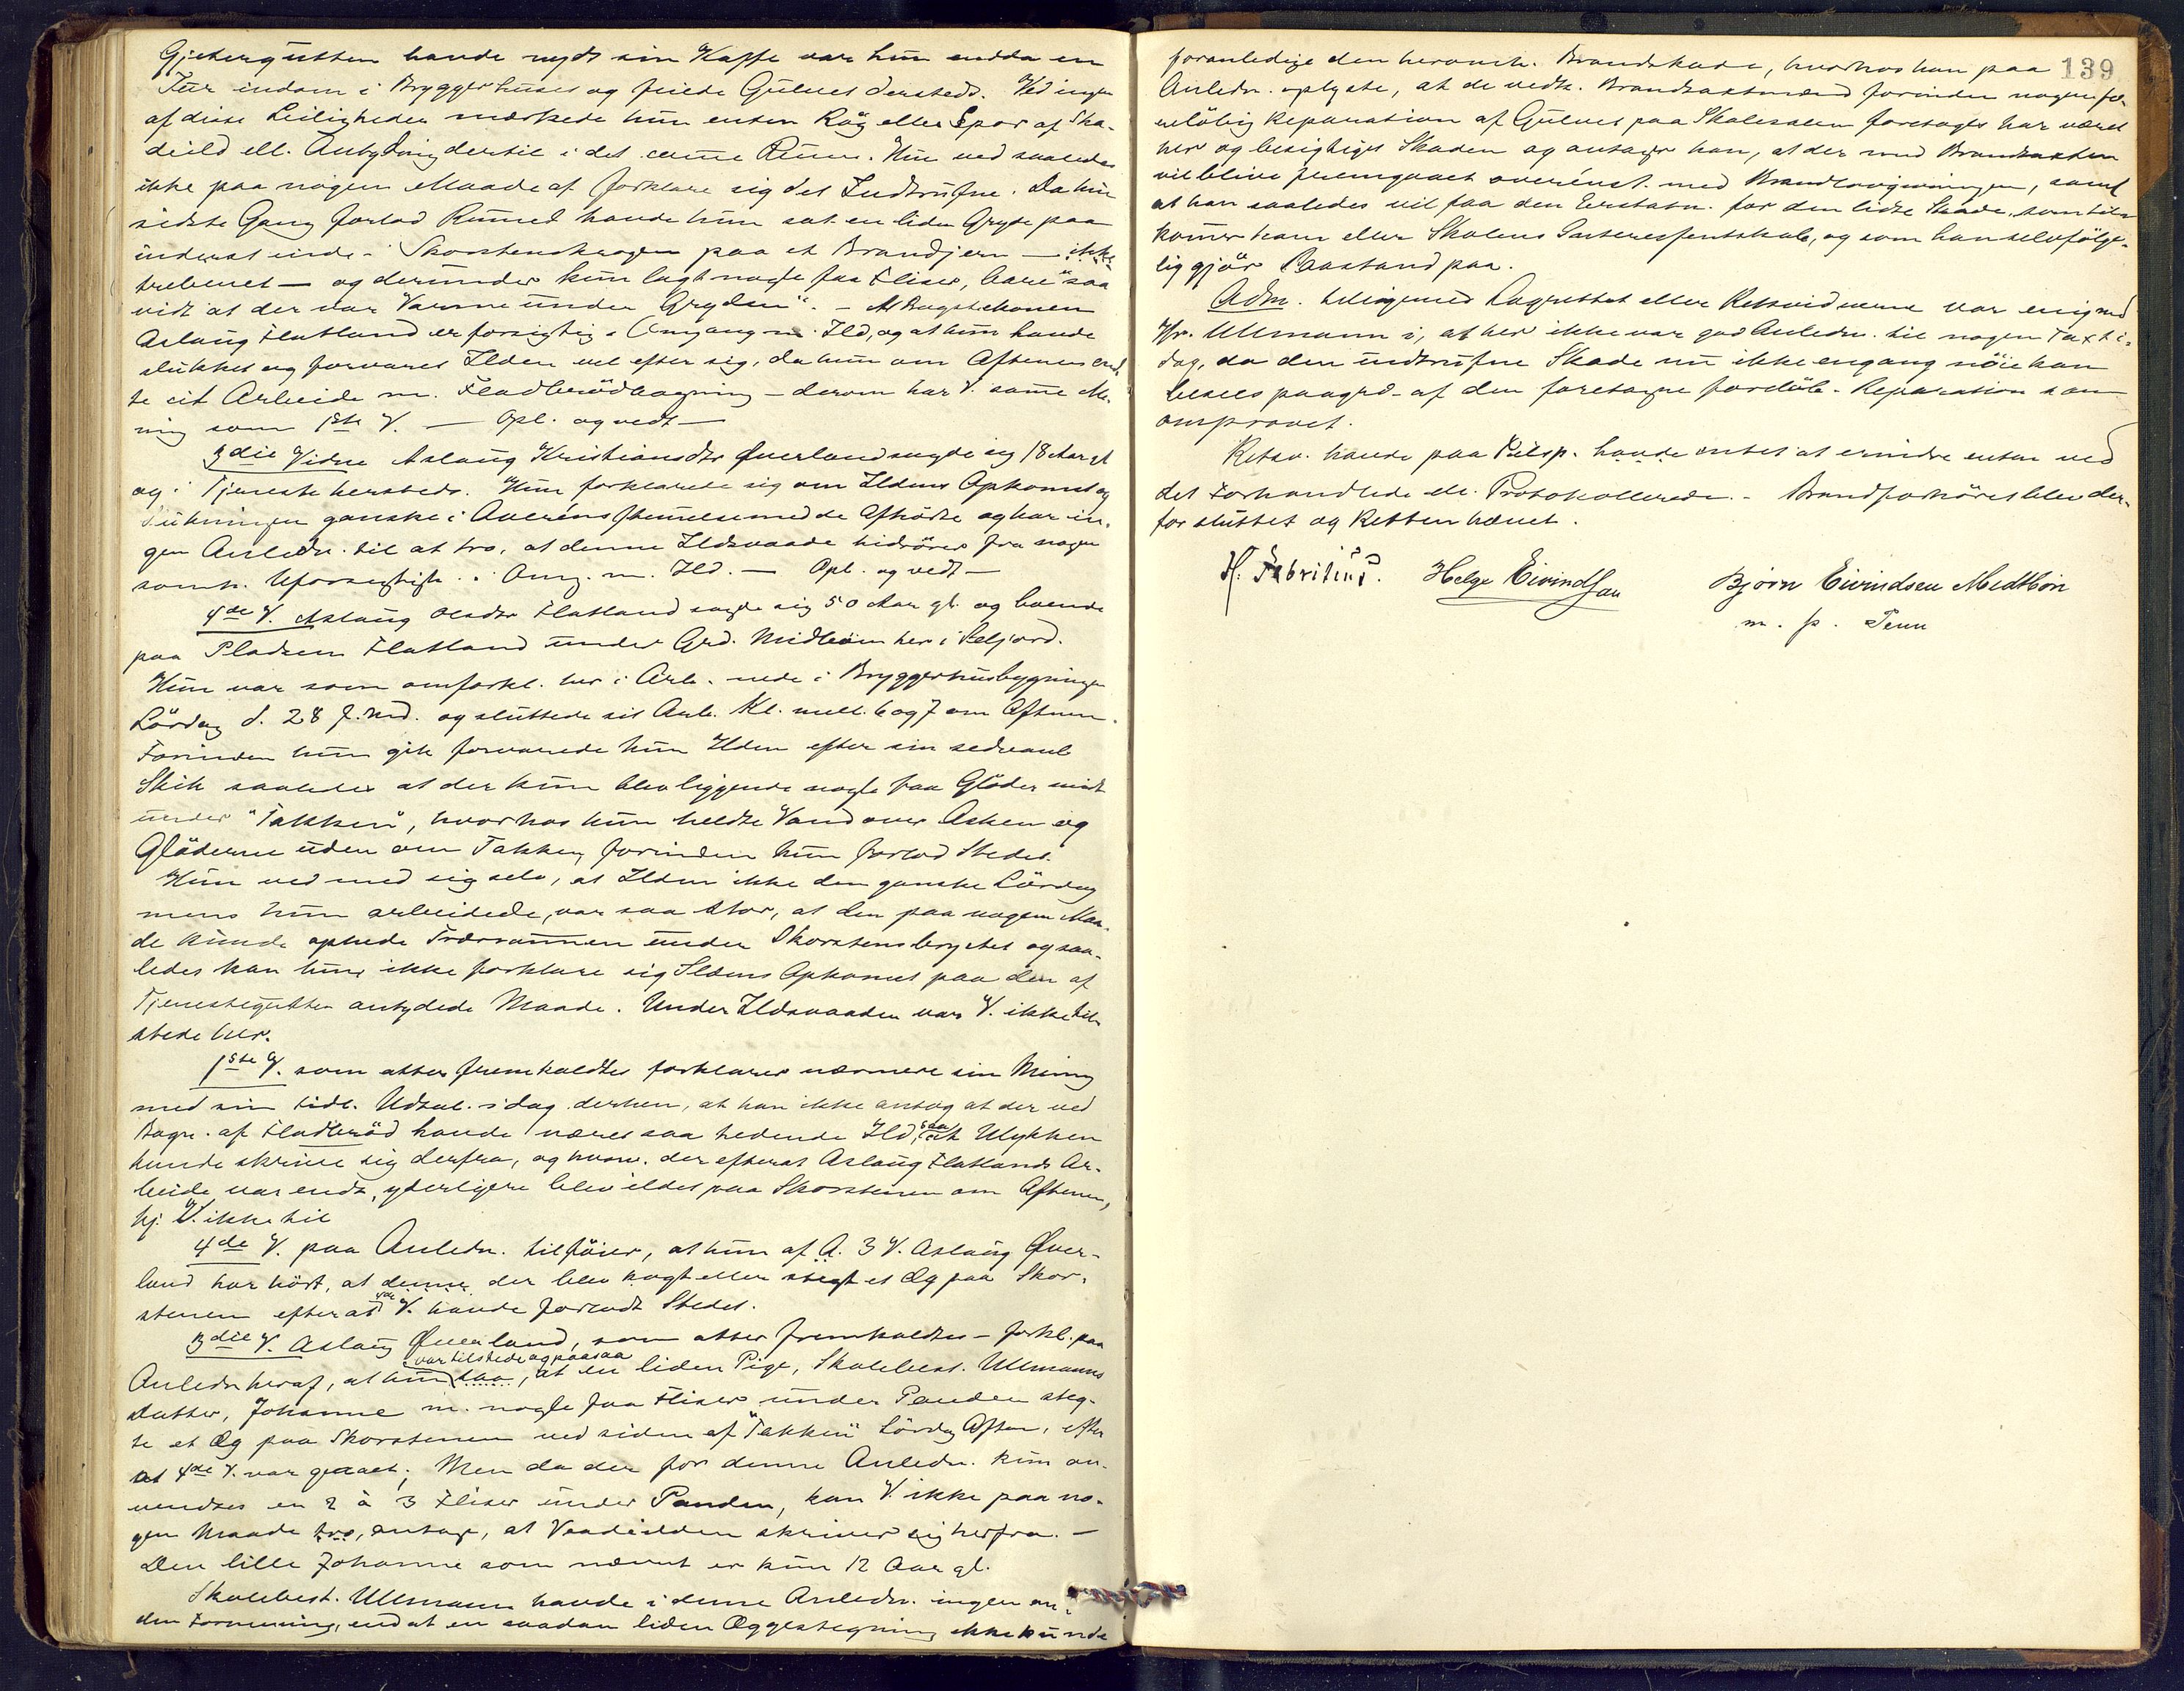 Gjetergutten havde nydt sin Kaffe var hun endda en
Tur indom i Bryggerhuset og feiede Gulvet dersteds. Ved ingen
af disse Leiligheder mærkede hun enten Røg eller Spor af Ska-
deild ell. Antydning dertil i det samme Rum. Hun ved saaledes
ikke paa nogen Maade at forklare sig det Indtrufne. Da hun
sidste Gang forlod Rummet havde hun sat en liden Gryde paa
inderst inde i Skorstenskrogen paa et Brandjern — ikke
trebenet — og derunder kun lagt nogle faa Fliser, bare "saa
vidt at der var Varme under Gryden". – At Bagstekonen
Aslaug Flatland er forsigtig i Omgang m. Ild, og at hun havde
slukket og forvaret Ilden vel efter sig, da hun om Aftenen end-
te sit Arbeide m. Fladbrødbagning – derom har V. samme Me-
ning som 1ste V. — Opl. og vedt —
3die Vidne Aslaug Kristiansdtr Øverland sagde sig 18 Aar gl
og i Tjeneste hersteds. Hun forklarede sig om Ildens Opkomst og
Slukningen ganske i Overensstemmelse med de Afhørte og har in-
gen Anledn. til at tro, at denne Ildsvaade hidrører fra nogen
somh. Uforsigtigh. i Omg. m. Ild. — Opl. og vedt —
4de V. Aslaug Olsdtr Flatland sagde sig 50 Aar gl. og boende
paa Pladsen Flatland under Grd. Midtbøen her i Seljord.
Hun var som omforkl. her i Arb. nede i Bryggerhusbygningen
Lørdag d. 28 f. Md. og sluttede sit Arb. Kl. mell. 6 og 7 om Aftenen.
Forinden hun gik forvarede hun Ilden efter sin sedvanl
Skik saaledes at der kun blev liggende nogle faa Gløder midt
under "Takken", hvorhos hun heldte Vand over Asken og
Gløderne uden om Takken, forinden hun forlod Stedet.
Hun ved med sig selv, at Ilden ikke den ganske Lørdag
mens hun arbeidede, var saa stor, at den paa nogen Maa-
de kunde ophede Trærammen under Skorstensbrystet og saa-
ledes kan hun ikke forklare sig Ildens Opkomst paa den af
Tjenestegutten antydede Maade. Under Ildsvaaden var V. ikke til-
stede her.
1ste V. som atter fremkaldtes forklarer nærmere sin Mening
med sin tidl. Udtal. idag derhen, at han ikke antog at der ved
Bagn. af Fladbrød havde været saa hedende Ild, saa at Ulykken
kunde skrive sig derfra, og hvorv. der efterat Aslaug Flatlands Ar-
beide var endt, yderligere blev ildet paa Skorstenen om Aftenen,
kj. V. ikke til
4de V. paa Anledn. tilføier, at hun af A. 3 V. Aslaug Øver-
land har hørt, at denne der blev kogt eller stegt et Æg paa Skor-
stenen efterat 4de V. havde forladt Stedet.
3die V. Aslaug Øverland, som atter fremkaldtes – forkl. paa
Anledn heraf, at hun var tilstede og paasaa, at en liden Pige, Skolebest. Ullmanns
Datter, Johanne m. nogle faa Fliser under Panden steg-
te et Æg paa Skorstenen ved siden af "Takken" Lørdag Aften, efter
at 4de V. var gaaet; Men da der for denne Anledn. kun an-
vendtes en 2 à 3 Fliser under Panden, kan V. ikke paa no-
gen Maade tro, antage, at Vaadeilden skriver sig herfra. –
Den lille Johanne som nævnt er kun 12 Aar gl.
Skolebest. Ullmann havde i denne Anledn. ingen an-
den Formening, end at en saadan liden Æggestegning ikke kunde
139
foranledige den heromh. Brandskade, hvorhos han paa
Anledn. oplyste, at de vedk. Brandtaktsmænd forinden nogen for-
eløbig Reparation af Gulvet paa Skolesalen foretoges har været
her og besigtiget Skaden og antager han, at der med Brandtakten
vil blive fremgaaet overenst. med Brandlovgivningen, samt
at han saaledes vil faa den Erstatn. for den lidte Skade, som til-
kommer ham eller Skolens Interessentskab, og som han selvfølge-
lig gjør Paastand paa.
Adm. tilligemed Lagrettet eller Retsvidnerne var enig med
Hr. Ullmann i, at her ikke var god Anledn. til nogen Taxt i-
dag, da den indtrufne Skade nu ikke engang nøie kan
besees paagrd. af den foretagne foreløb. Reparation som
omprovet.
Retsv. havde paa Tilsp. havde intet at erindre enten ved
det Forhandlede ell. Protokollerede. – Brandforhøret blev der-
for sluttet og Retten hævet.
H. Fabritius. Helge Eivindsen Bjørn Eivindsen Midtbøn
m. p. Penn